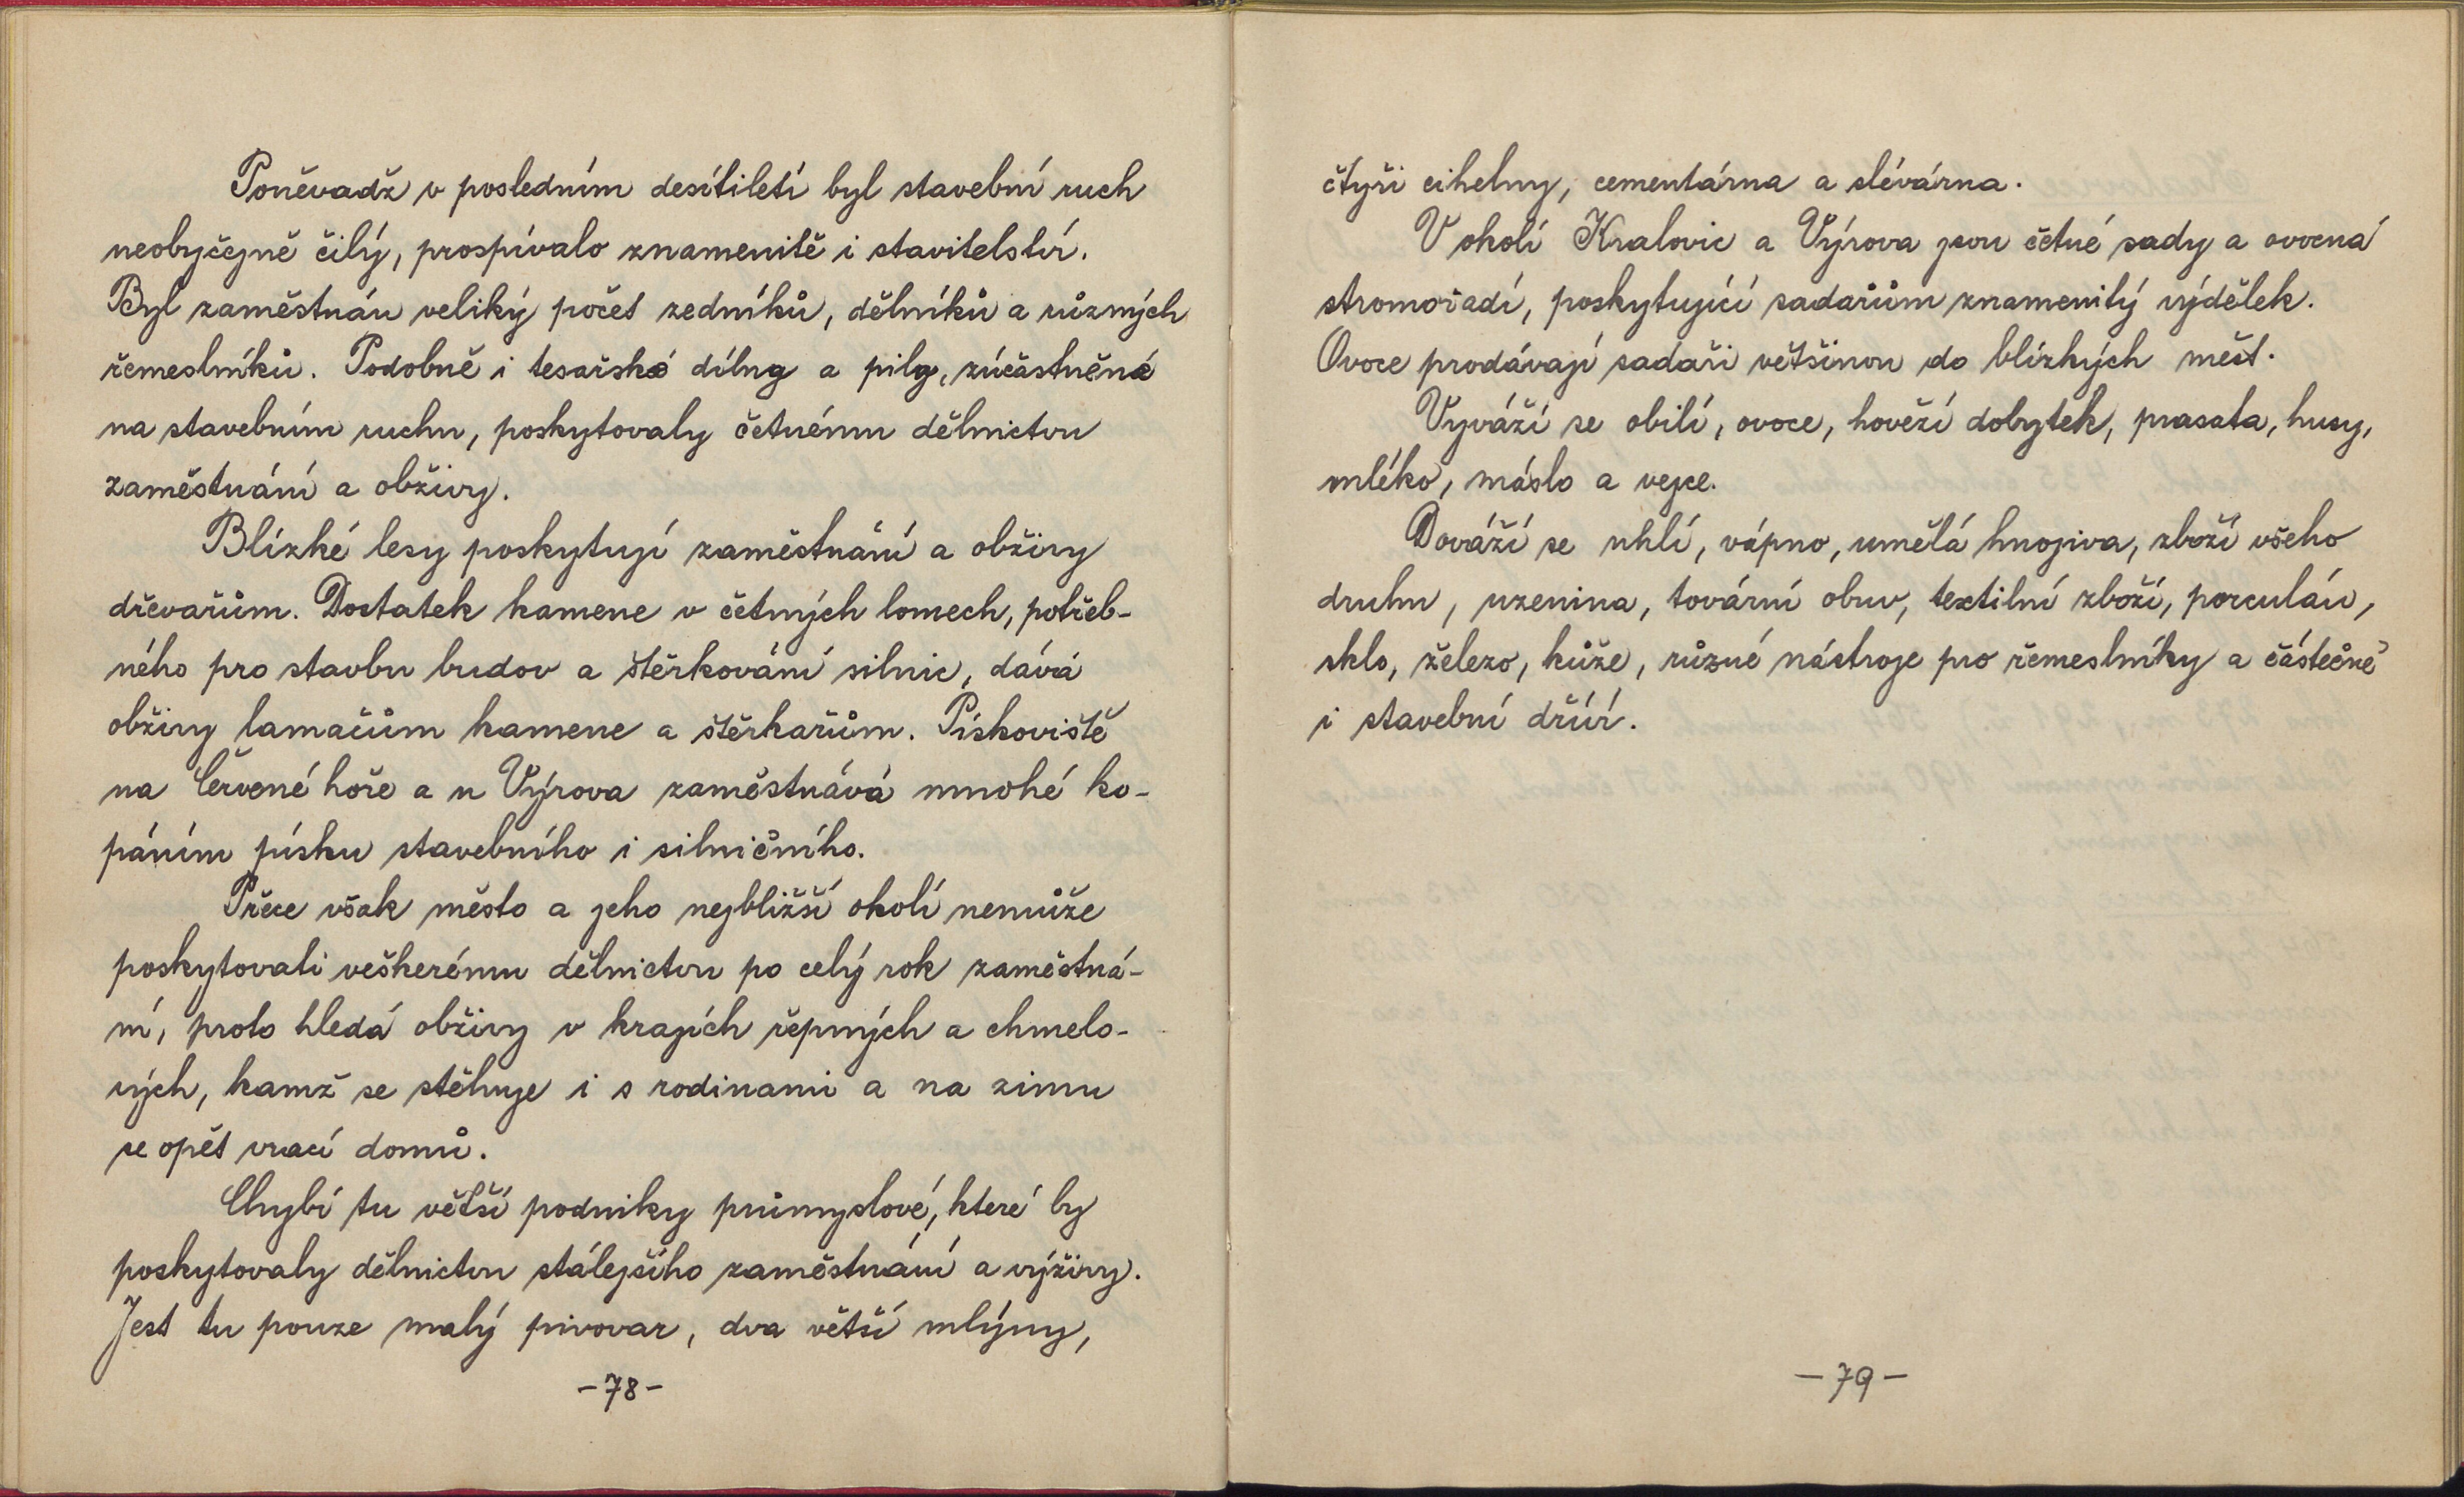 Poněvadž v posledním desítiletí byl stavební ruch
neobyčejně čilý, prospívalo znamenitě i stavitelství.
Byl zaměstnán veliký počet zedníků, dělníků a různých
řemeslníků. Podobně i tesařské dílny a pily, zúčastněné
na stavebním ruchu, poskytovaly četnému dělnictvu
zaměstnání a obživy.
Blízké lesy poskytují zaměstnání a obživy
dřevařům. Dostatek kamene v četných lomech, potřeb-
ného pro stavbu budov a štěrkování silnic, dává
obživy lamačům kamene a štěrkařům. Pískoviště
na Červené hoře a u Výrova zaměstnává mnohé ko-
páním písku stavebního i silničního.
Přece však město a jeho nejbližší okolí nemůže
poskytovati veškerému dělnictvu po celý rok zaměstná-
ní, proto hledá obživy v krajích řepných a chmelo-
vých, kamž se stěhuje i s rodinami a na zimu
se opět vrací domů.
Chybí tu větší podniky průmyslové, které by
poskytovaly dělnictvu stálejšího zaměstnání a výživy.
Jest tu pouze malý pivovar, dva větší mlýny,
-78-
čtyři cihelny, cementárna a slévárna.
V okolí Kralovic a Výrova jsou četné sady a ovocná
stromořadí, poskytující sadařům znamenitý výdělek.
Ovoce prodávají sadaři většinou do blízkých měst.
Vyváží se obilí, ovoce, hovězí dobytek, prasata, husy,
mléko, máslo a vejce.
Dováží se uhlí, vápno, umělá hnojiva, zboží všeho
druhu, uzenina, tovární obuv, textilní zboží, porculán,
sklo, železo, kůže, různé nástroje pro řemeslníky a částečně
i stavební dříví.
-79-